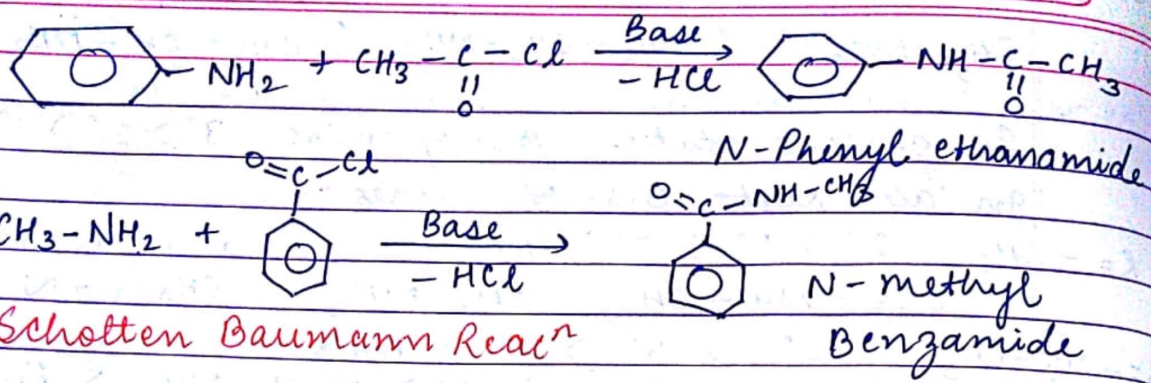 C₆H₅-NH₂ + CH₃-C(=O)-Cl Base → -HCl C₆H₅-NH-C(=O)-CH₃
N-Phenyl ethanamide
CH₃-NH₂ + O=C-Cl Base → -HCl O=C-NH-CH₃
N-methyl
Benzamide
Schotten Baumann Reacⁿ